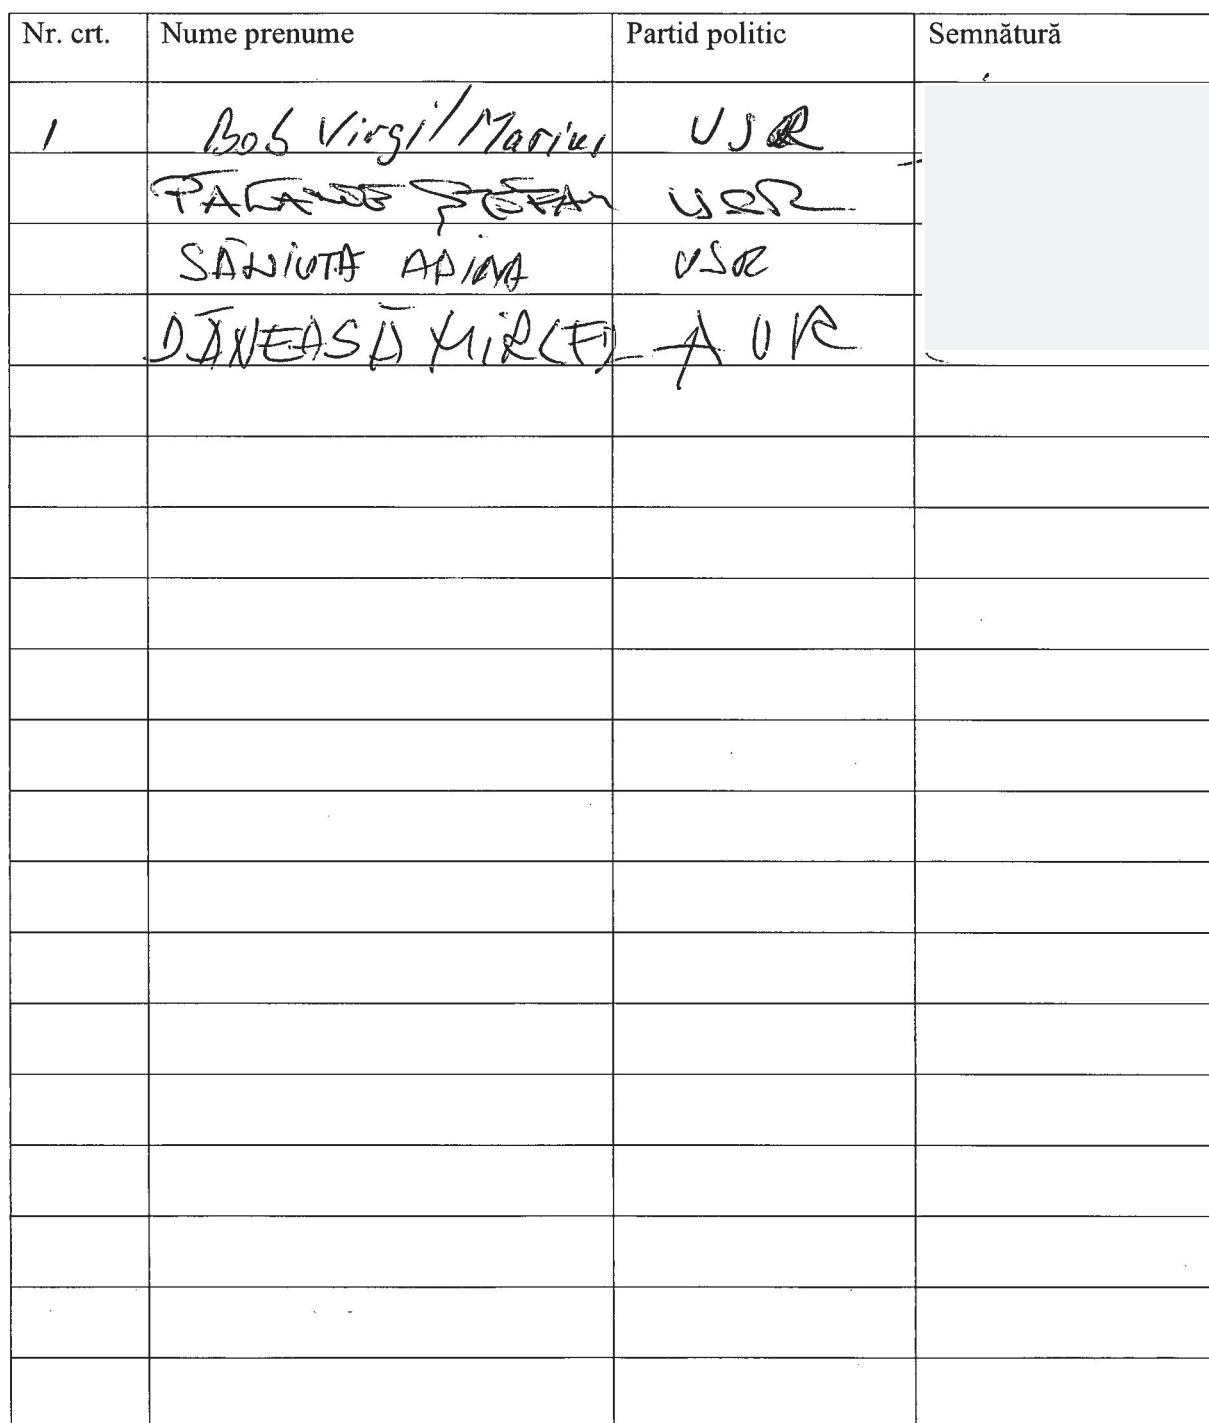 Nr. crt. Nume prenume Partid politic Semnătură
1 Bob Virgil Marius USR
PALANDE ȘTEFAN USR
SĂNIUTĂ ADINA USR
DĂNEASĂ MIRCEA AUR